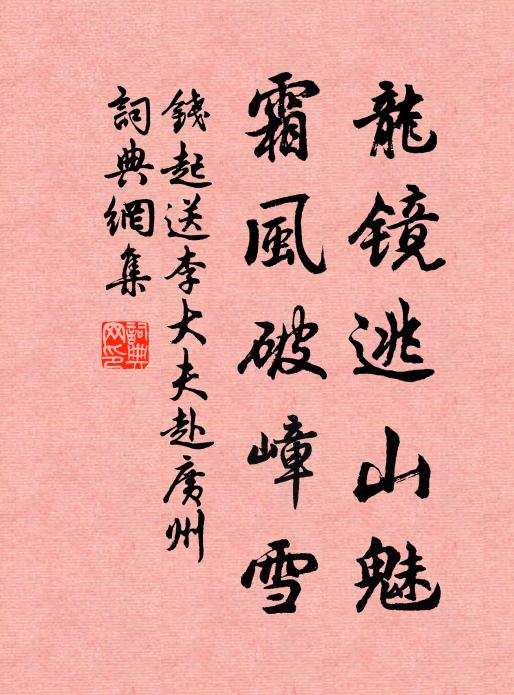 龍镜逃山魅
霜風破嶂雪
錢起送李大夫赴廣州
詞典網集
詞典网印